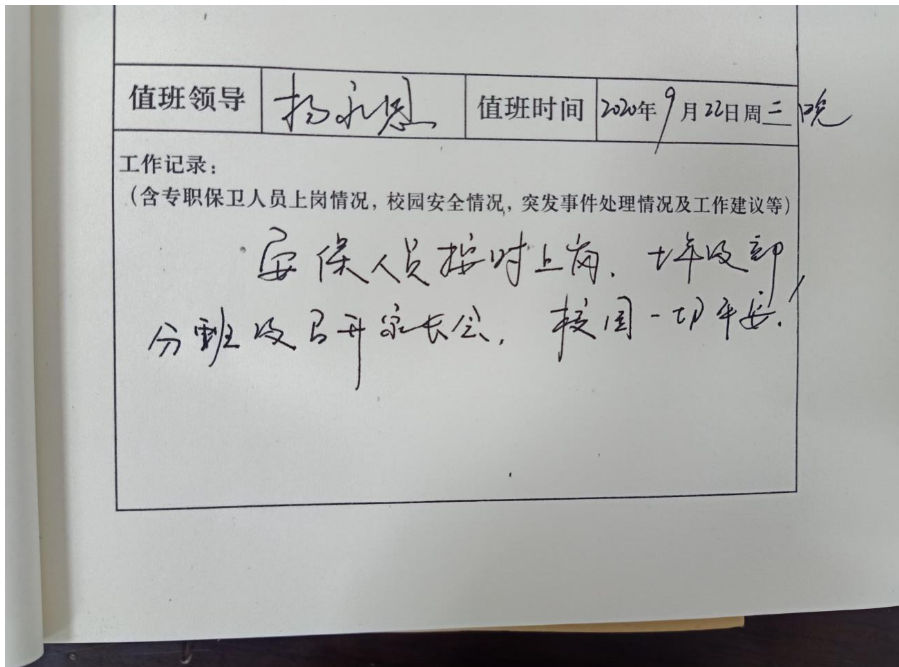 值班领导 杨永恩 值班时间 2020年9月22日周二晚
工作记录:
(含专职保卫人员上岗情况,校园安全情况,突发事件处理情况及工作建议等)
安保人员按时上岗、七年级部
分班级召开家长会,校园一切平安!